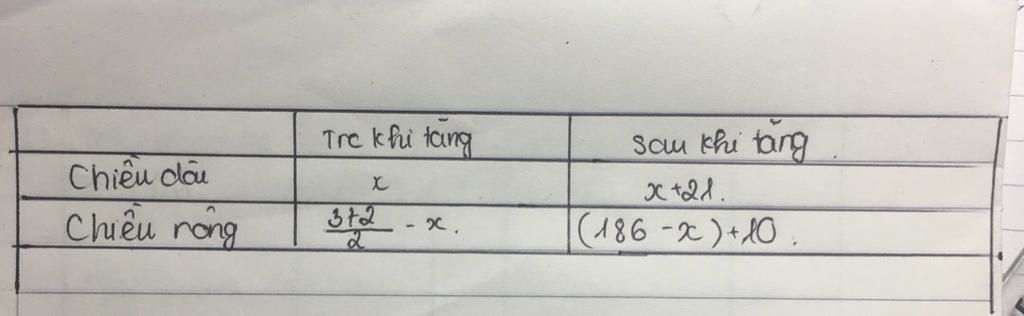 Trc khi tăng sau khi tăng.
Chiều dài x x+21.
Chiều rộng 372/2 - x. (186 - x)+10.